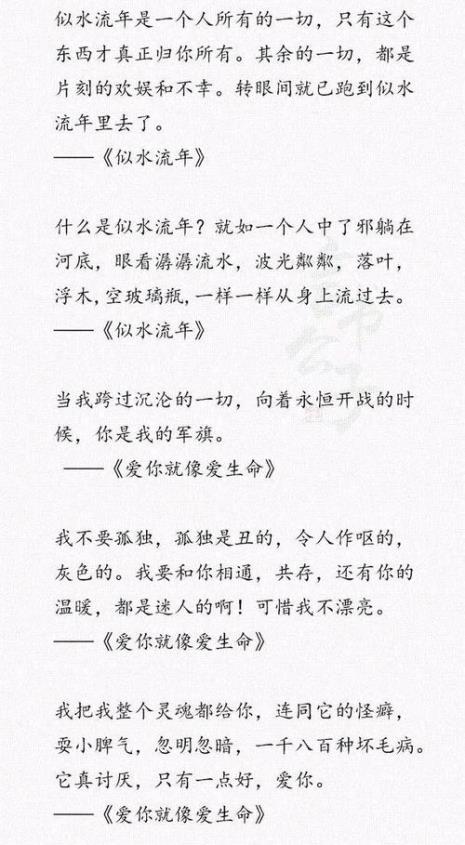 似水流年是一个人所有的一切，只有这个
东西才真正归你所有。其余的一切，都是
片刻的欢娱和不幸。转眼间就已跑到似水
流年里去了。
——《似水流年》
什么是似水流年？就如一个人中了邪躺在
河底，眼看潺潺流水，波光粼粼，落叶，
浮木,空玻璃瓶,一样一样从身上流过去。
——《似水流年》
当我跨过沉沦的一切，向着永恒开战的时
候，你是我的军旗。
——《爱你就像爱生命》
我不要孤独，孤独是丑的，令人作呕的，
灰色的。我要和你相通，共存，还有你的
温暖，都是迷人的啊！可惜我不漂亮。
——《爱你就像爱生命》
我把我整个灵魂都给你，连同它的怪癖，
耍小脾气，忽明忽暗，一千八百种坏毛病。
它真讨厌，只有一点好，爱你。
——《爱你就像爱生命》